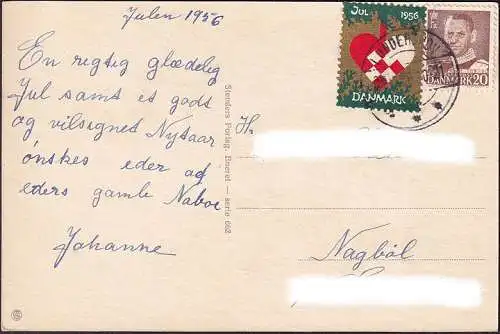 Julen 1956
En rigtig glædelig
Jul samt et godt
og vilsigned Nytaar
ønskes eder af
eders gamle Naboe
Johanne
Stenders Forlag. Eneret — serie 662
JUL 1956
DANMARK
DANMARK 20
H:
Nagbøl